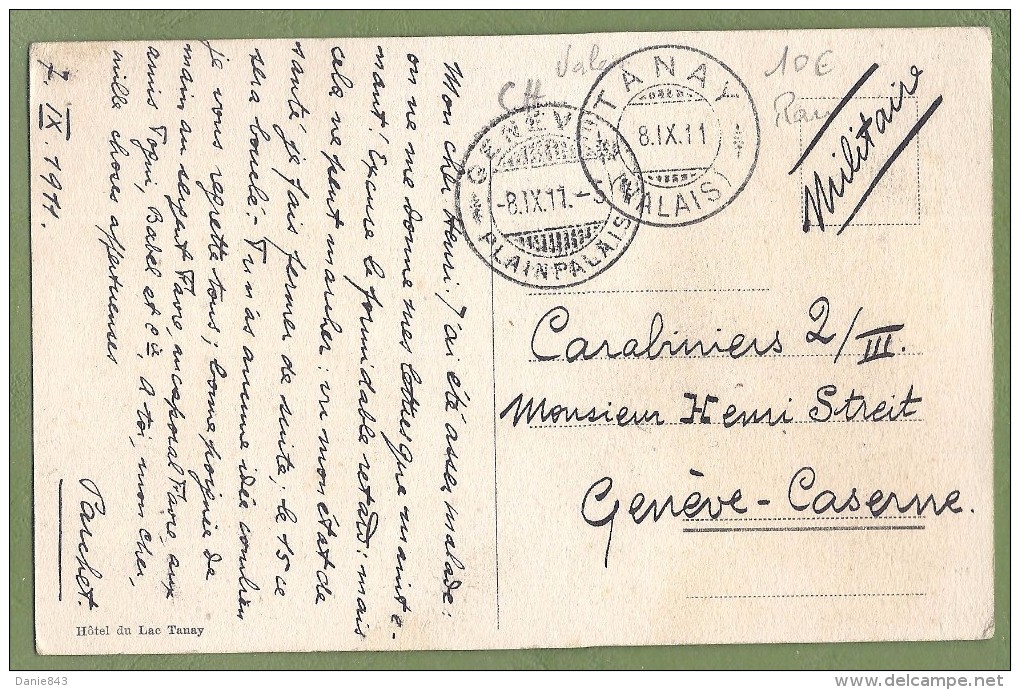 Mon cher Henri, J'ai été assez malade:
on ne me donne mes lettres que mainte-
nant! Excuse le formidable retard: mais
cela ne peut marcher: vu mon état de
santé je fais fermer de suite; le 15 ce
sera bouclé. Tu n'as aucune idée combien
je vous regrette tous; bonne poignée de
main au sergent Favre, au caporal Favre, aux
amis Togni, Babel et cie, A toi, mon cher,
mille choses affectueuses
Parchet.
7. IX. 1911.
Hôtel du Lac Tanay
CH
Vala
10€
GENÈVE
-8.IX.11.-5
PLAINPALAIS
TANAY
8.IX.11
(VALAIS)
Militaire
Carabiniers 2/III.
Monsieur Henri Streit
Genève-Caserne.
Danie843
delcampe.net